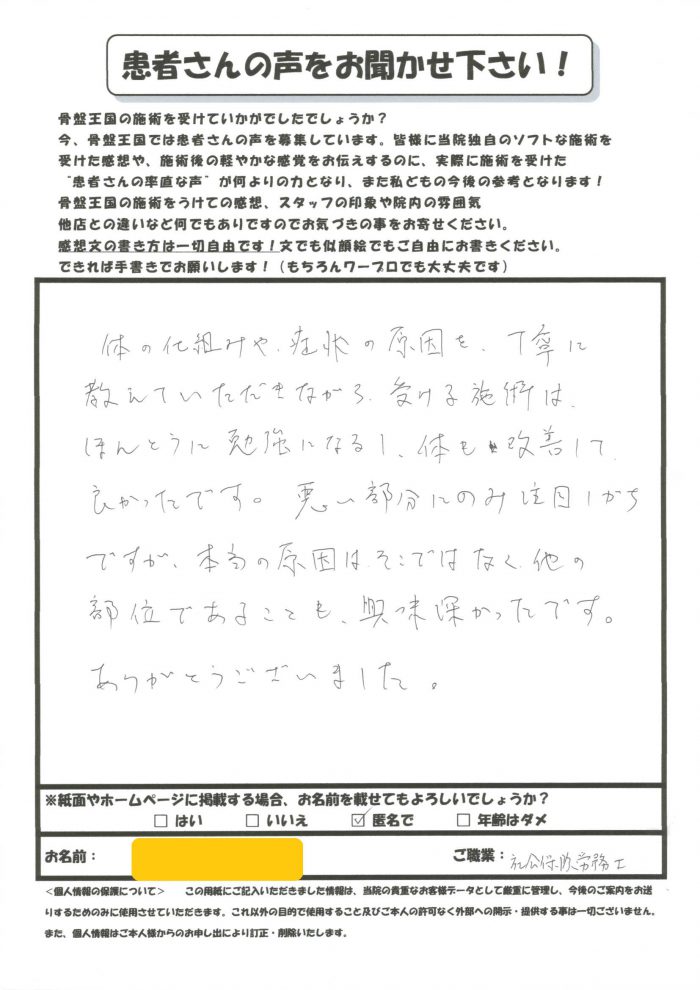 患者さんの声をお聞かせ下さい！
骨盤王国の施術を受けていかがでしたでしょうか？
今、骨盤王国では患者さんの声を募集しています。皆様に当院独自のソフトな施術を
受けた感想や、施術後の軽やかな感覚をお伝えするのに、実際に施術を受けた
"患者さんの率直な声"が何よりの力となり、また私どもの今後の参考となります！
骨盤王国の施術をうけての感想、スタッフの印象や院内の雰囲気
他店との違いなど何でもありですのでお気づきの事をお寄せください。
感想文の書き方は一切自由です！文でも似顔絵でもご自由にお書きください。
できれば手書きでお願いします！（もちろんワープロでも大丈夫です）
体の仕組みや、症状の原因を、丁寧に
教えていただきながら、受ける施術は、
ほんとうに勉強になるし、体も改善して
良かったです。悪い部分にのみ注目しがち
ですが、本当の原因はそこではなく、他の
部位であることも、興味深かったです。
ありがとうございました。
※紙面やホームページに掲載する場合、お名前を載せてもよろしいでしょうか？
□ はい □ いいえ ☑ 匿名で □ 年齢はダメ
お名前： ご職業：社会保険労務士
＜個人情報の保護について＞ この用紙にご記入いただきました情報は、当院の貴重なお客様データとして厳重に管理し、今後のご案内をお送
りするためのみに使用させていただきます。これ以外の目的で使用すること及びご本人の許可なく外部への開示・提供する事は一切ございません。
また、個人情報はご本人様からのお申し出により訂正・削除いたします。